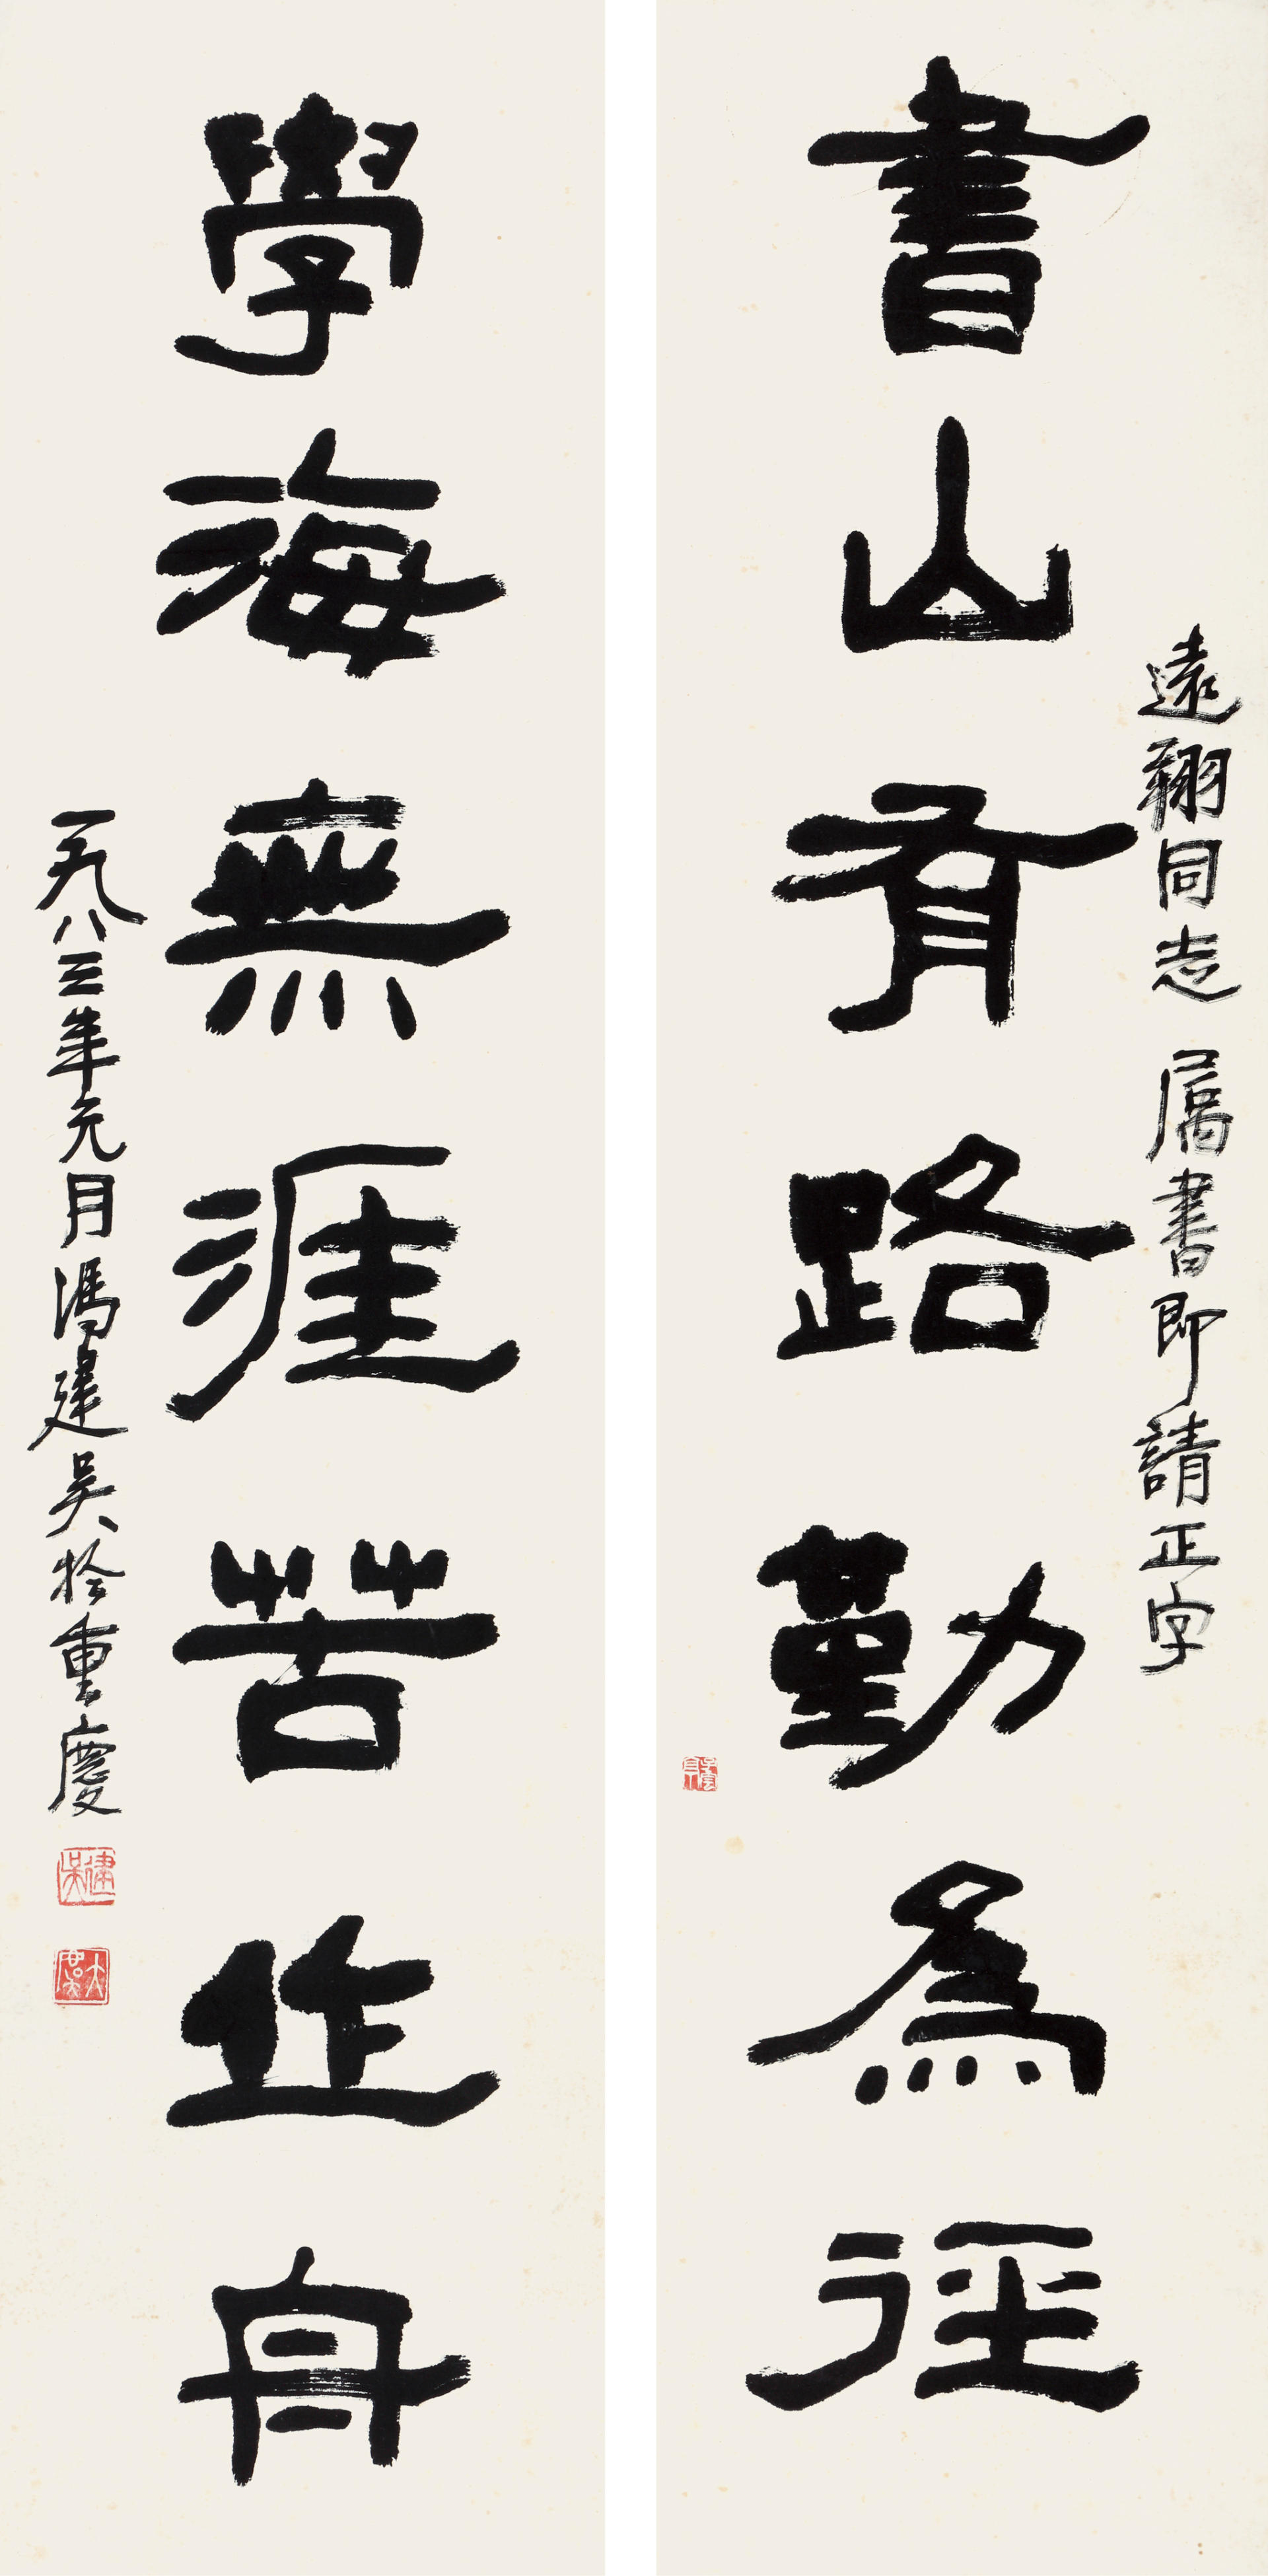 遠翔同志 屬書即請正字
書山有路勤為徑
學海無涯苦作舟
一九八三年元月馮建吳於重慶
建吳